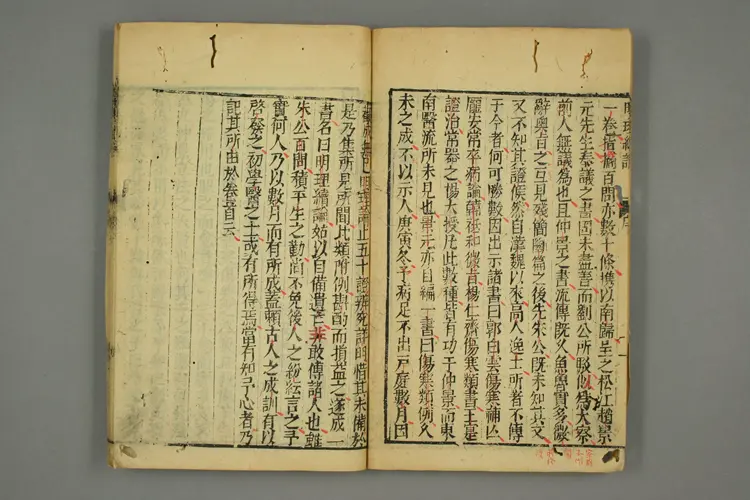 一卷指摘百問亦數十條攜以南歸呈之松江趙景
元先生奏議之書固未盡善而劉公所駁似為太察
前人無議為也且仲景之書流傳既久魚魯實多微
辭奧旨之互見殘簡斷篇之後先朱公既未知其文
又不知其證候然自漢魏以來高人逸士所著不傳
于今者何可勝數因出示諸書曰郭白雲傷寒補亡
龐安常卒病論韓祗和微旨楊仁齊傷寒類書王是
證治常器之楊大授凡此數種皆有功于仲景而東
南醫流所未見也景元亦自編一書曰傷寒類例久
未之成不以示人庚寅冬予病足不出戶庭數月因
無己明理論止五十證辨究詳明惜其未備於
是乃集所見所聞比類附例斟酌而損益之遂成一
書名曰明理續論始以自備遺亡非敢傳諸人也雖
朱公百問積平生之勤尚不免後人之紛紜言之予
實何人乃以數月而有所成蓋頼古人之成訓有以
啓發之初學醫之士或有所得焉當有知予心者乃
記其所由於卷首云